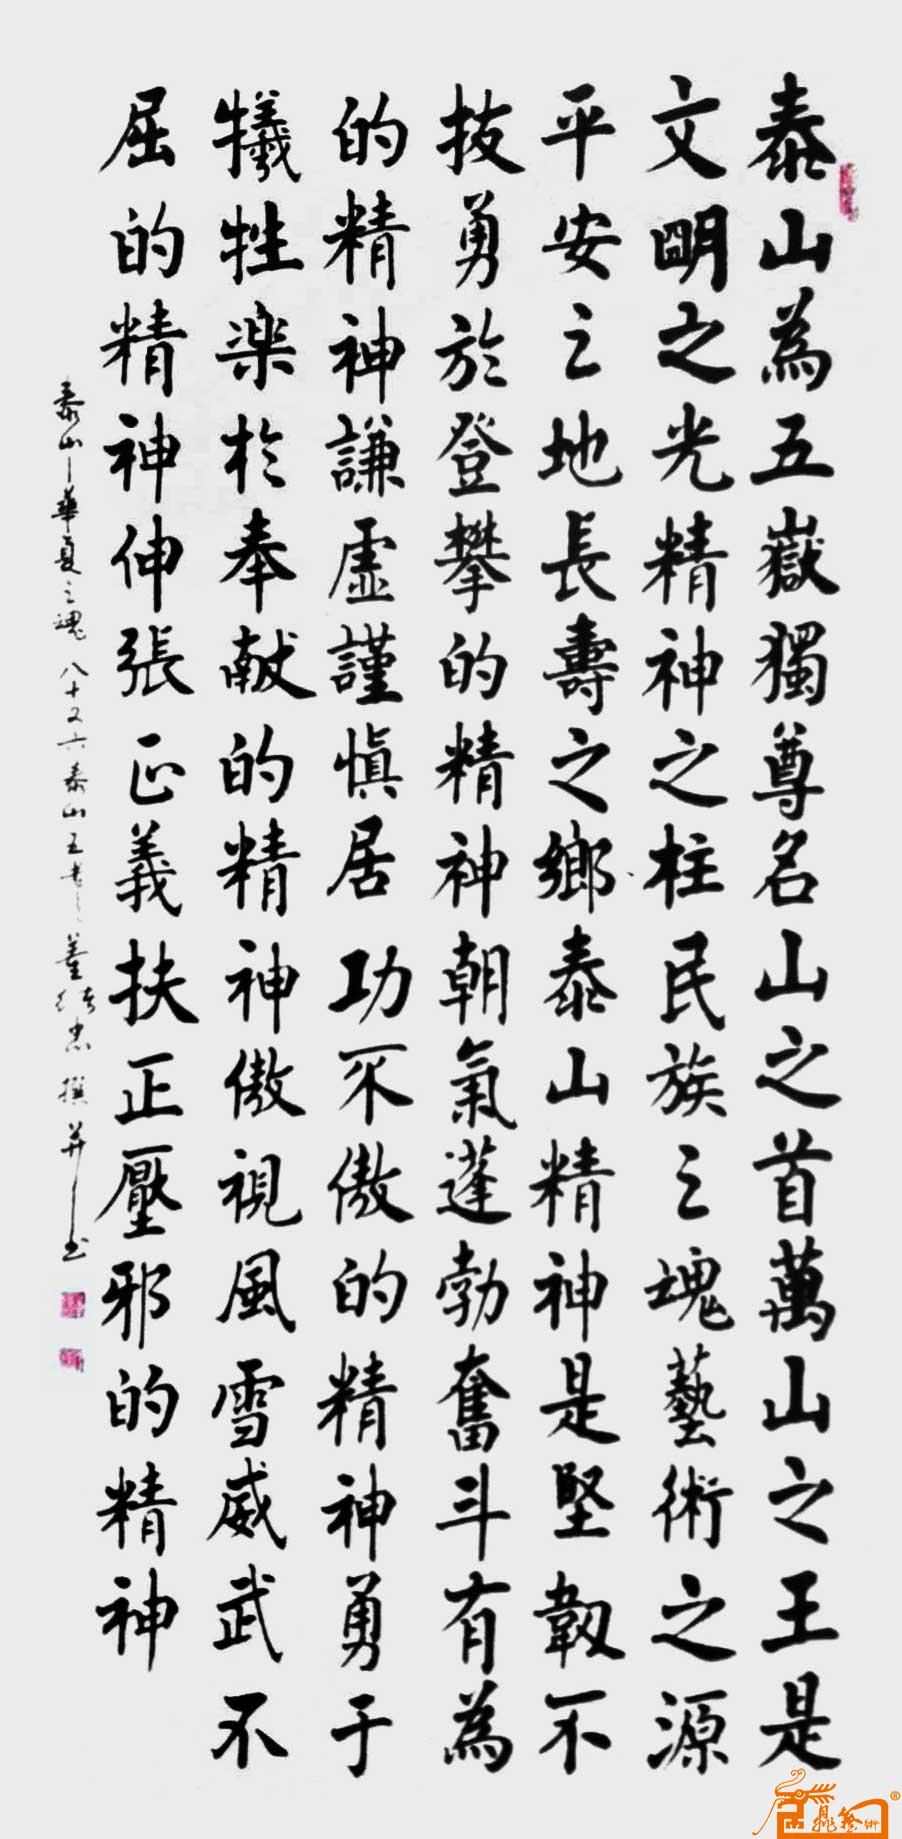 泰山為五嶽獨尊名山之首萬山之王是
文明之光精神之柱民族之魂藝術之源
平安之地長壽之鄉泰山精神是堅韌不
技勇於登攀的精神朝氣蓬勃奮斗有為
的精神謙虛謹慎居功不傲的精神勇于
犧牲楽於奉献的精神傲視風雪威武不
屈的精神伸張正義扶正壓邪的精神
泰山華夏之魂 八十又六泰山 撰并书